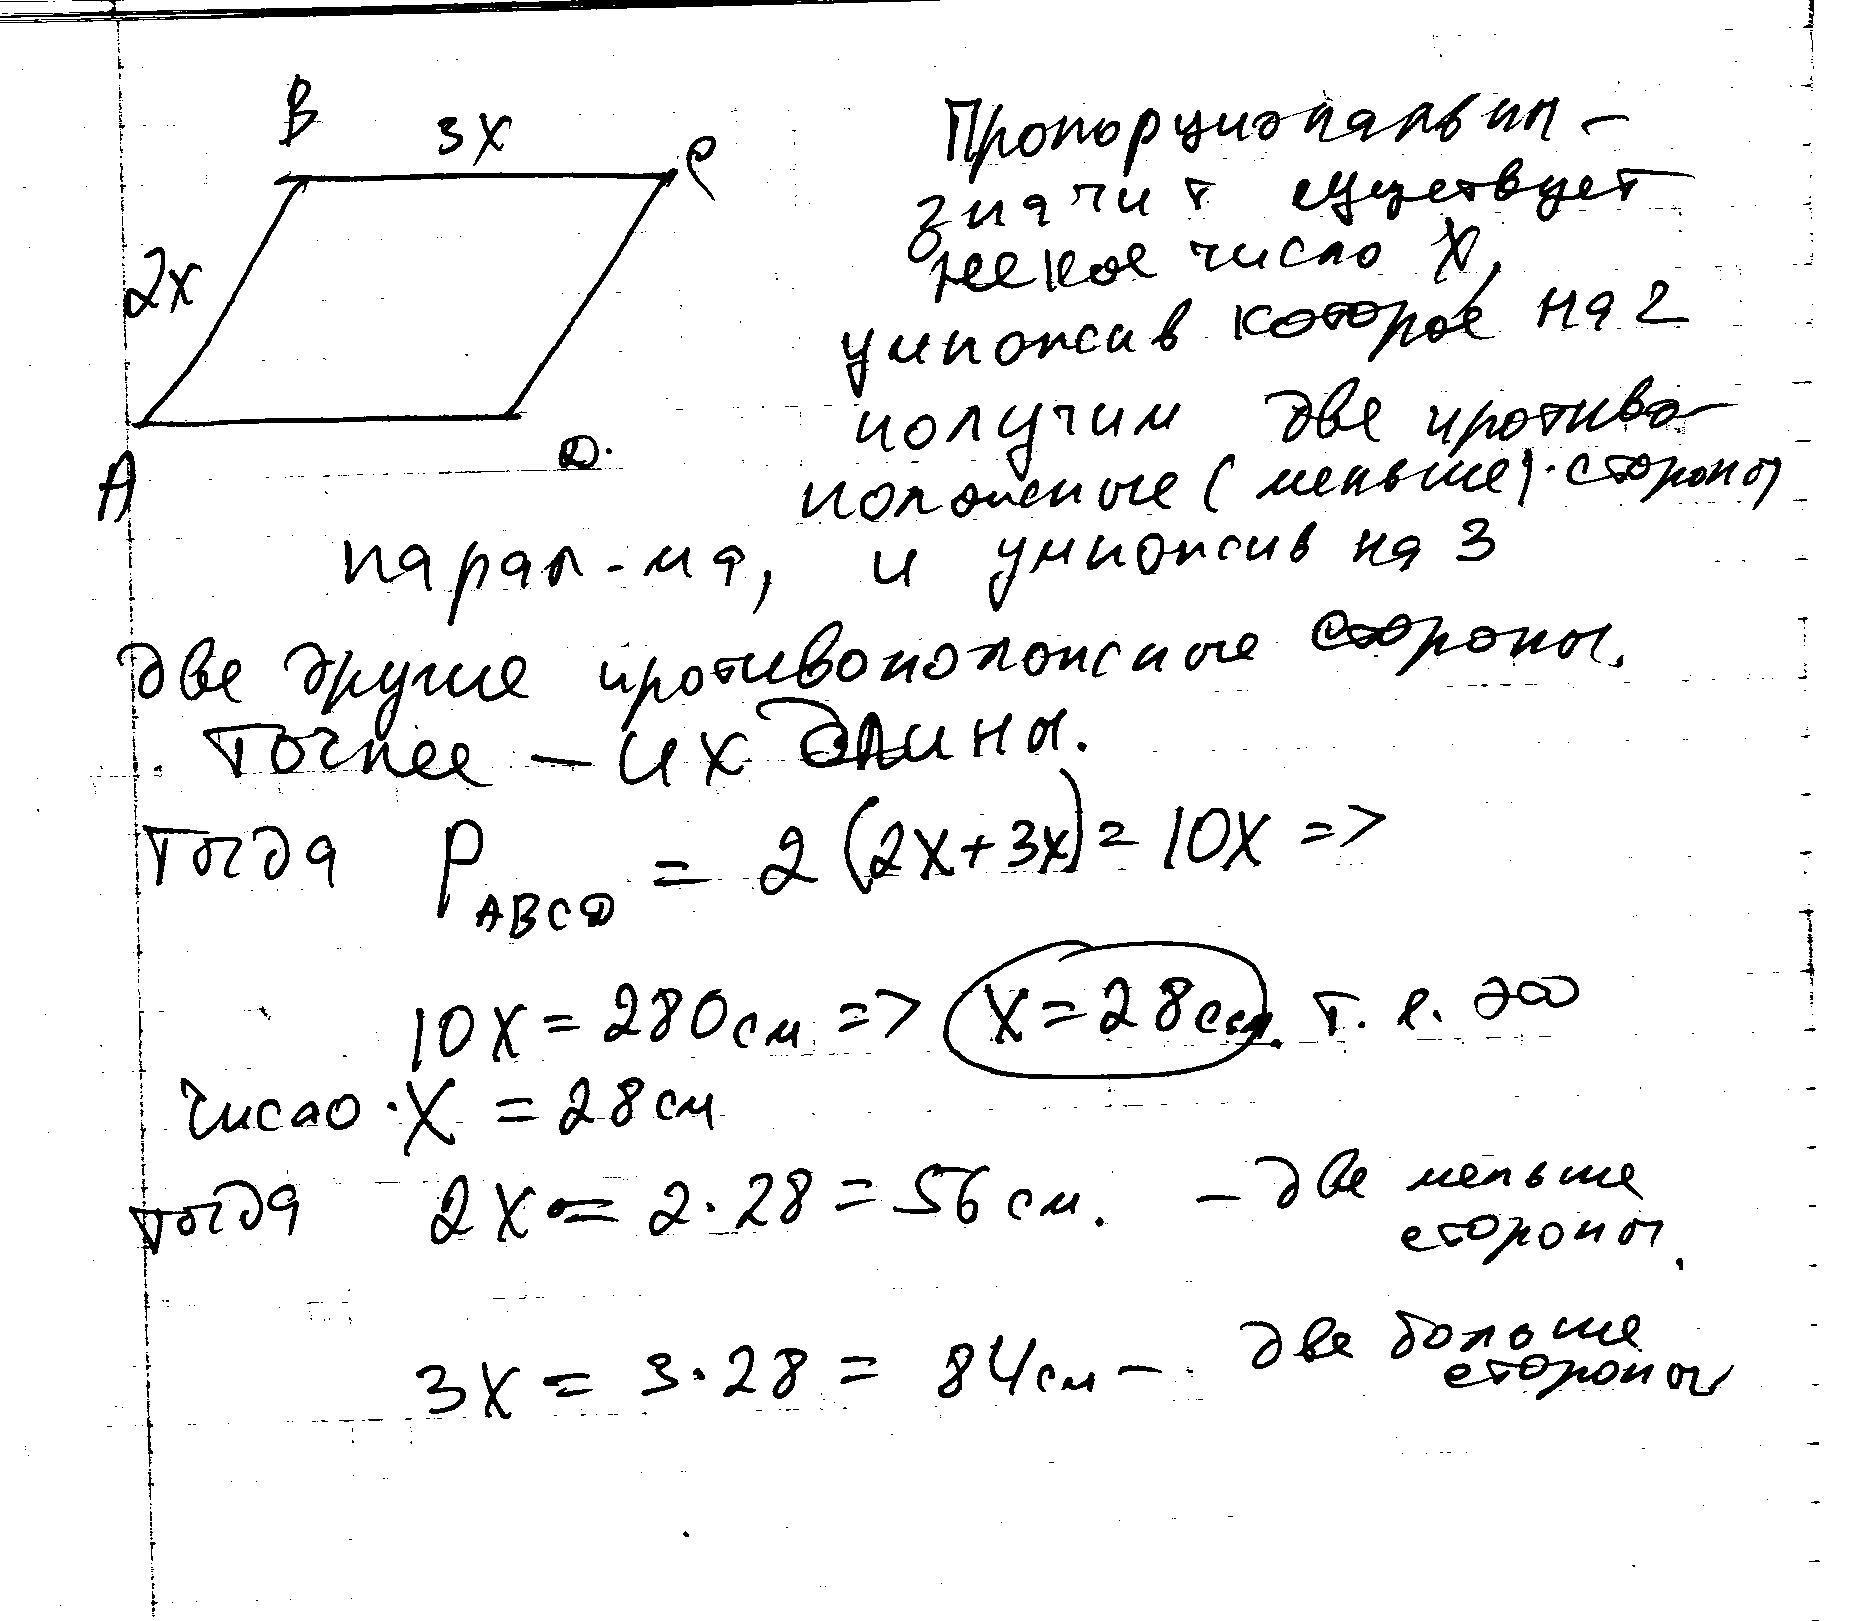 B
3x
C
2x
A
D.
Пропорциональны -
значит существует
некое число X,
умножив которое на 2
получим две противо-
положные (меньше) стороны
парал-ма, и умножив на 3
две другие противоположные стороны.
Точнее - их длины.
Тогда P ABCD = 2 (2x+3x) = 10x =>
10x = 280 см => x = 28 см. т. е. это
число X = 28 см
тогда 2x = 2·28 = 56 см. - две меньше
стороны.
3x = 3·28 = 84 см - две больше
стороны